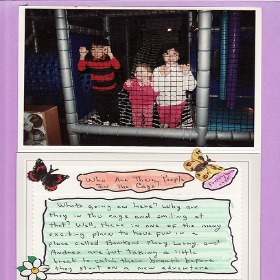 Who Are These People
In The Cage!
Whats going on here? Why are
they in this cage and smiling at
that? Well, there is one of the many
exciting place to have fun in a
place called Bonkers. Mary, Lenny, and
Andrea are just taking a little
to catch their breath before
they start on a new adventure.